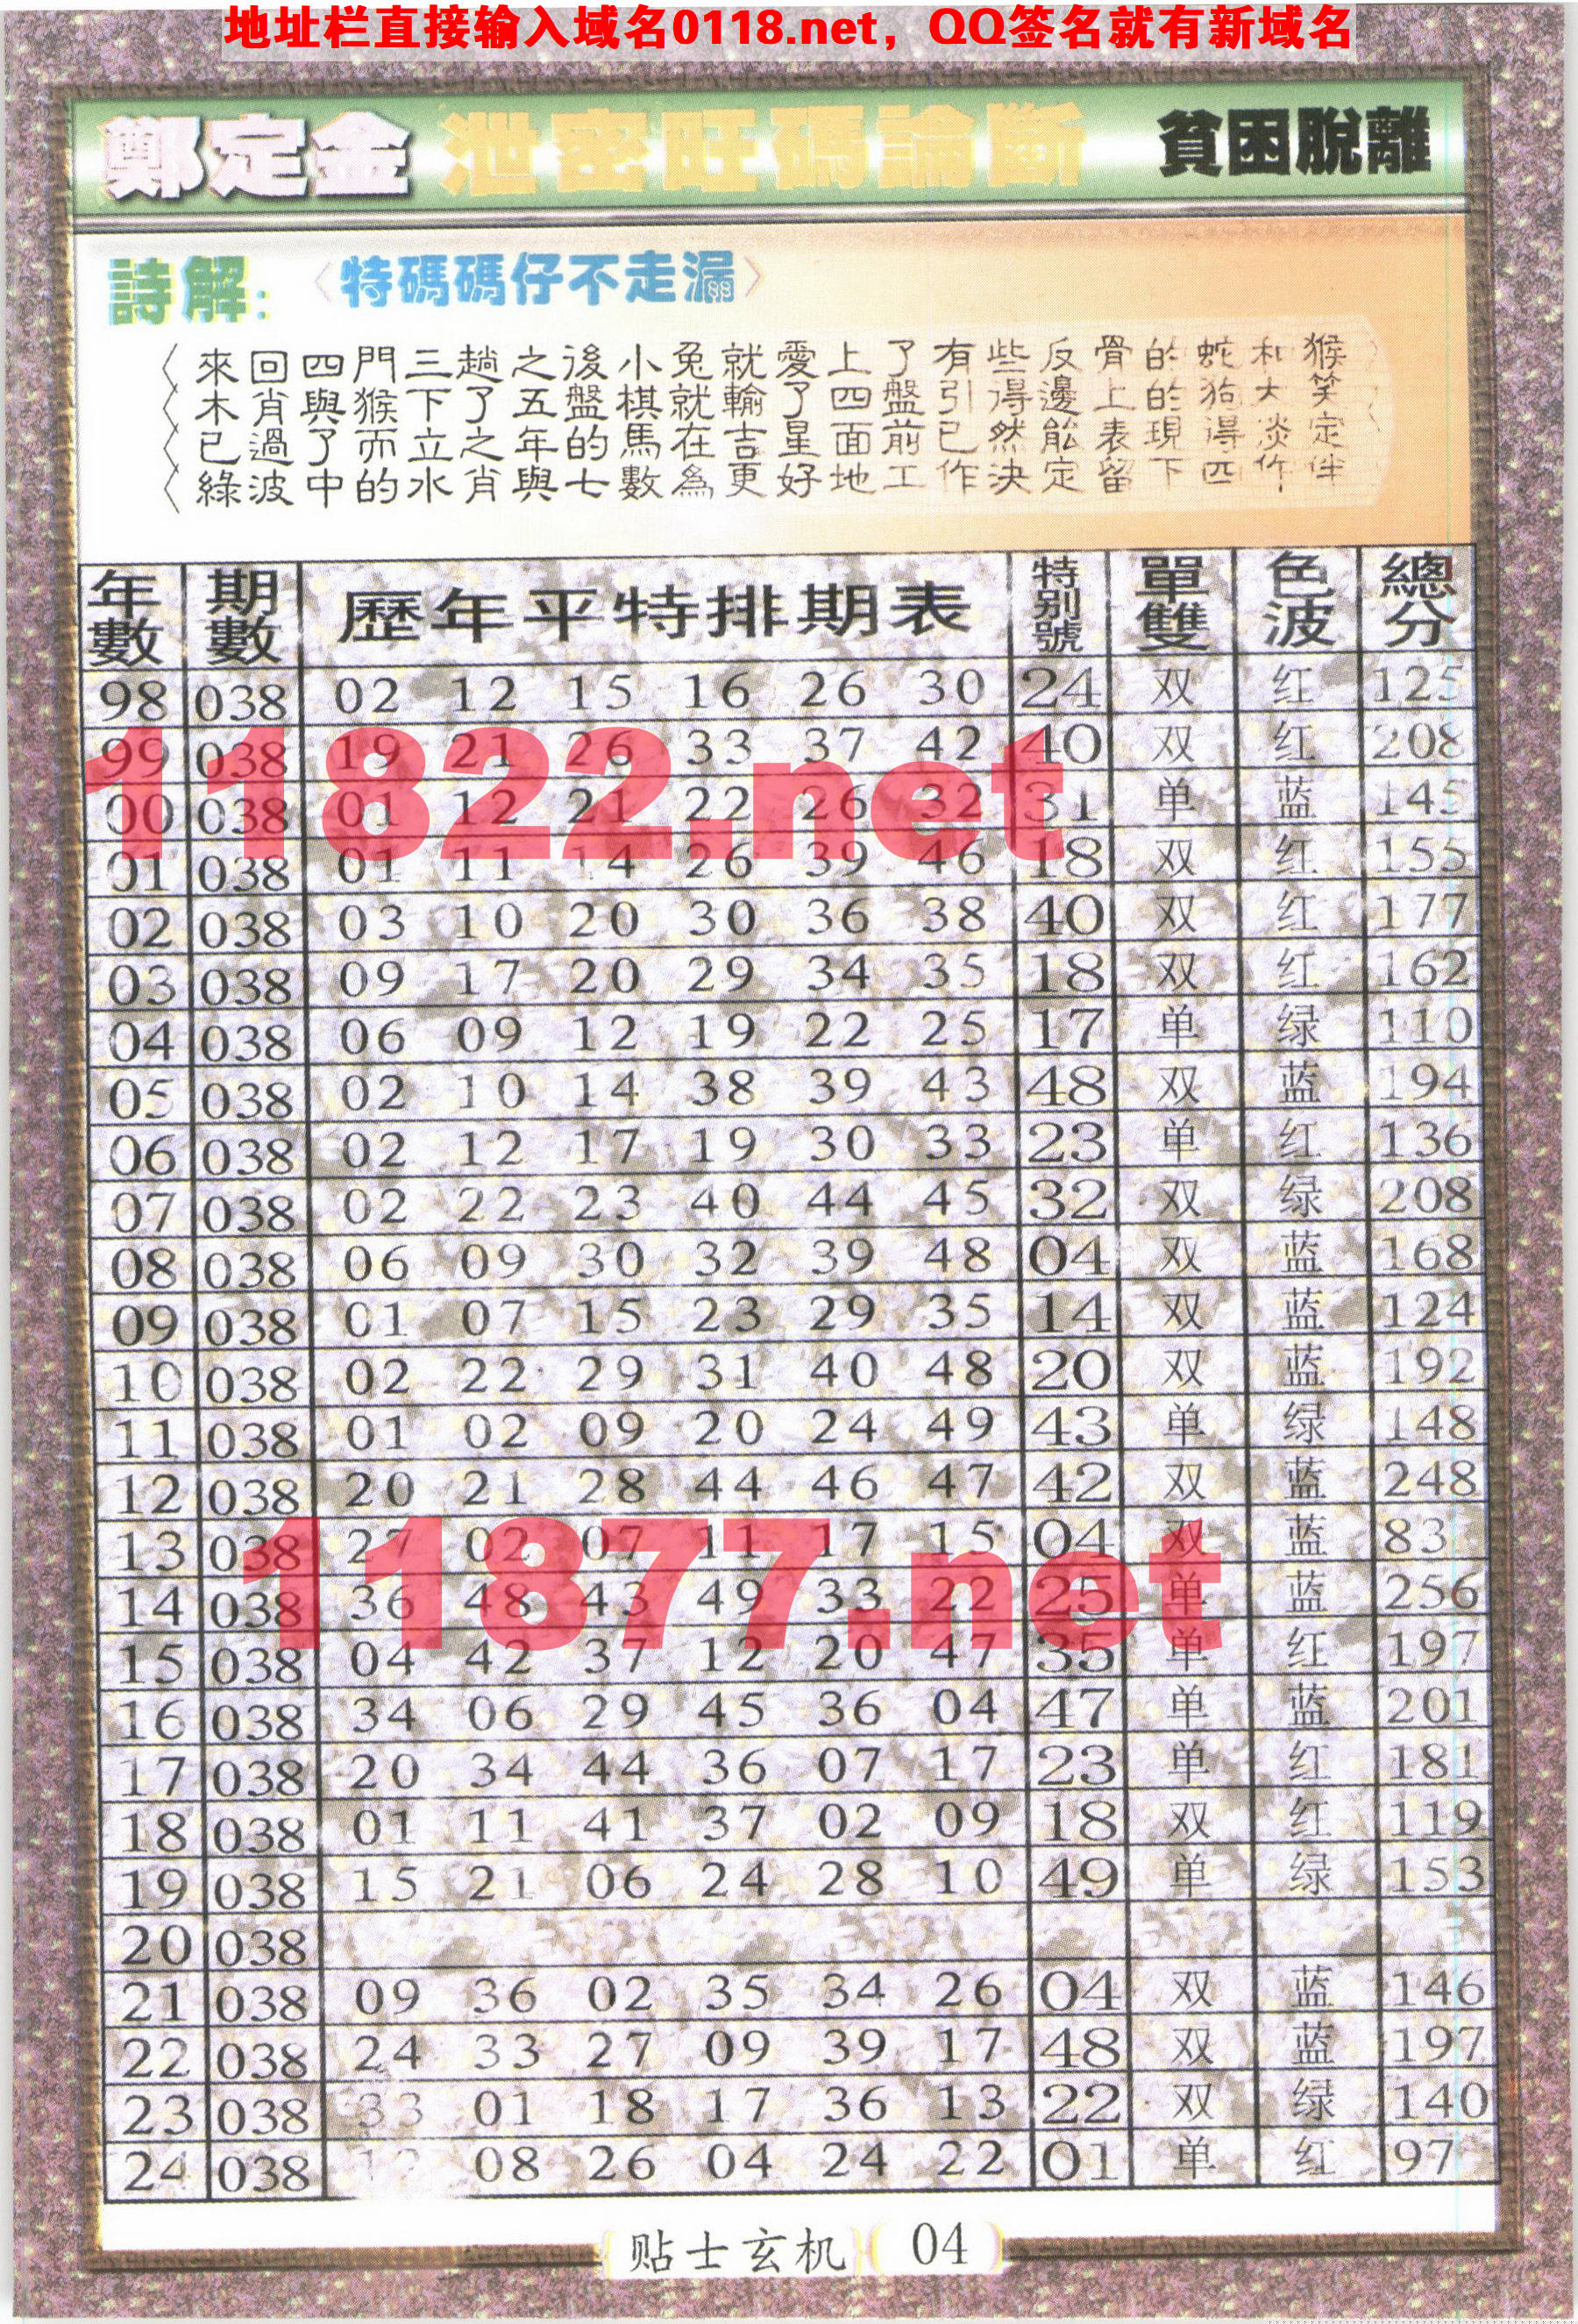 地址栏直接输入域名0118.net，QQ签名就有新域名
鄭定金 泄密旺碼論斷 貧困脫離
詩解: 〈特碼碼仔不走漏〉
來回四門三趟之後小兔就愛上了有些反骨的蛇和猴
木肖與猴下了五盤棋就輸了四盤引得邊上的狗大笑
已過了而立之年的馬在吉星面前已然能表現得淡定
綠波中的水肖與七數為更好地工作決定留下四作伴
年數 期數 歷年平特排期表 特别號 單雙 色波 總分
98 038 02 12 15 16 26 30 24 双 红 125
99 038 19 21 26 33 37 42 40 双 红 208
00 038 01 12 21 22 26 32 31 单 蓝 145
01 038 01 11 14 26 39 46 18 双 红 155
02 038 03 10 20 30 36 38 40 双 红 177
03 038 09 17 20 29 34 35 18 双 红 162
04 038 06 09 12 19 22 25 17 单 绿 110
05 038 02 10 14 38 39 43 48 双 蓝 194
06 038 02 12 17 19 30 33 23 单 红 136
07 038 02 22 23 40 44 45 32 双 绿 208
08 038 06 09 30 32 39 48 04 双 蓝 168
09 038 01 07 15 23 29 35 14 双 蓝 124
10 038 02 22 29 31 40 48 20 双 蓝 192
11 038 01 02 09 20 24 49 43 单 绿 148
12 038 20 21 28 44 46 47 42 双 蓝 248
13 038 27 02 07 11 17 15 04 双 蓝 83
14 038 36 48 43 49 33 22 25 单 蓝 256
15 038 04 42 37 12 20 47 35 单 红 197
16 038 34 06 29 45 36 04 47 单 蓝 201
17 038 20 34 44 36 07 17 23 单 红 181
18 038 01 11 41 37 02 09 18 双 红 119
19 038 15 21 06 24 28 10 49 单 绿 153
20 038
21 038 09 36 02 35 34 26 04 双 蓝 146
22 038 24 33 27 09 39 17 48 双 蓝 197
23 038 33 01 18 17 36 13 22 双 绿 140
24 038 12 08 26 04 24 22 01 单 红 97
11822.net
11877.net
贴士玄机 04